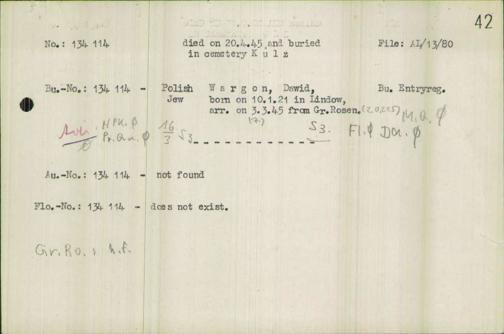 42
No.: 134 114 died on 20.4.45 and buried File: AI/13/80
in cemetery K u l z
Bu.-No.: 134 114 - Polish W a r g o n, Dawid, Bu. Entryreg.
Jew born on 10.1.21 in Lindow,
arr. on 3.3.45 from Gr.Rosen. M.a. φ
H.Pk. φ 16/3 S3 S3. Fl. φ Da. φ
Au.-No.: 134 114 - not found
Flo.-No.: 134 114 - does not exist.
Gr.Ro.: n.f.